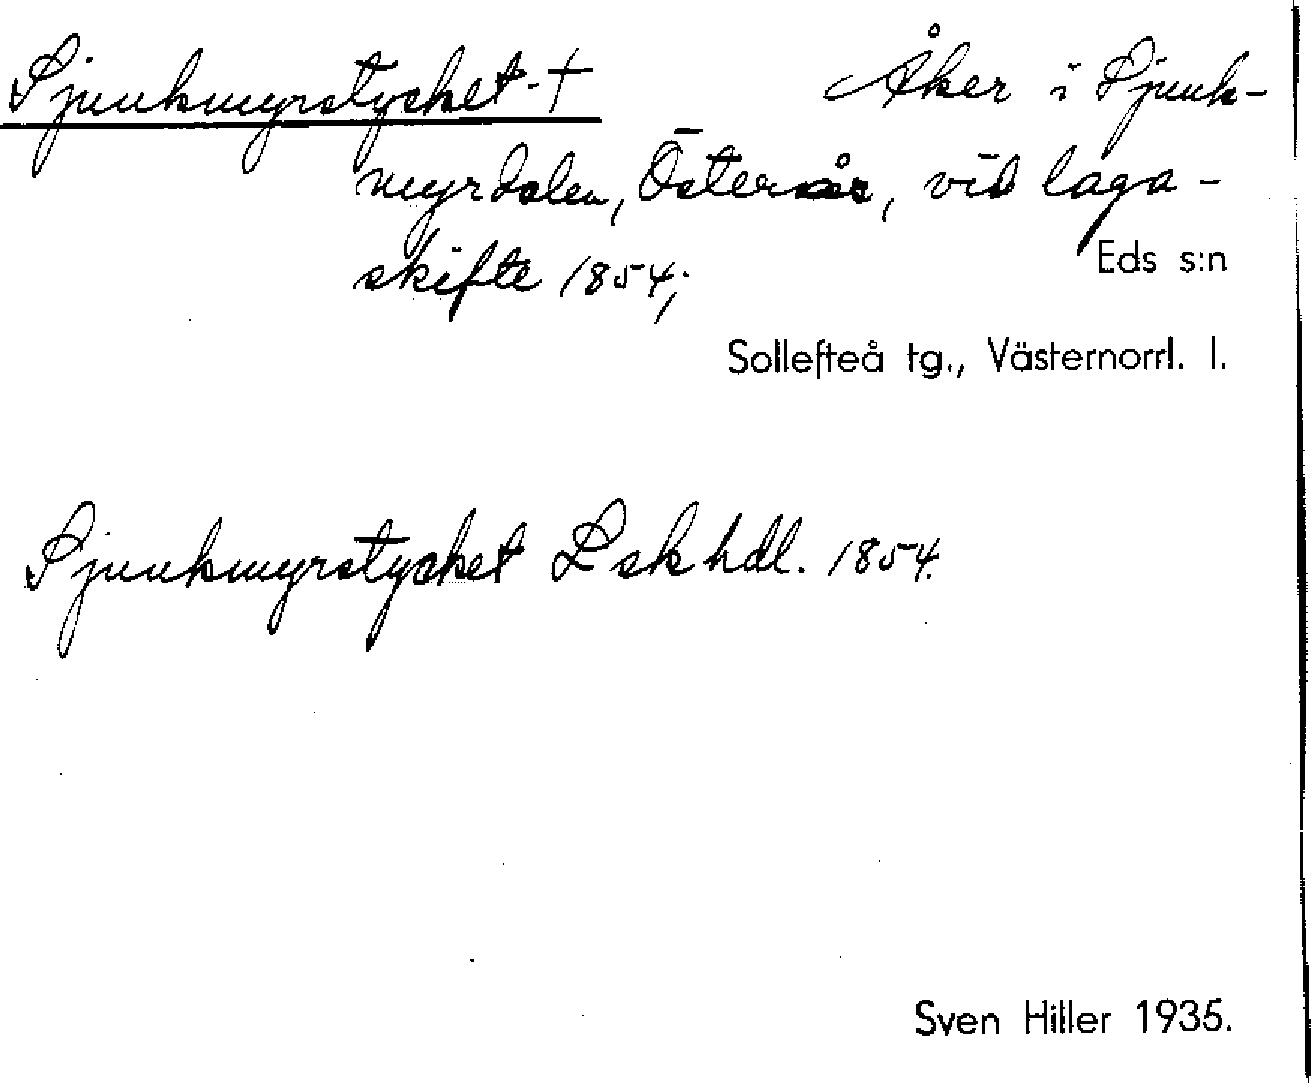 Sjunkmyrstycket † Åker i Sjunk-
myrdalen, Österås, vid laga-
skifte 1854;
Eds s:n
Sollefteå tg., Västernorrl. l.
Sjunkmyrstycket Lskhdl. 1854.
Sven Hiller 1935.